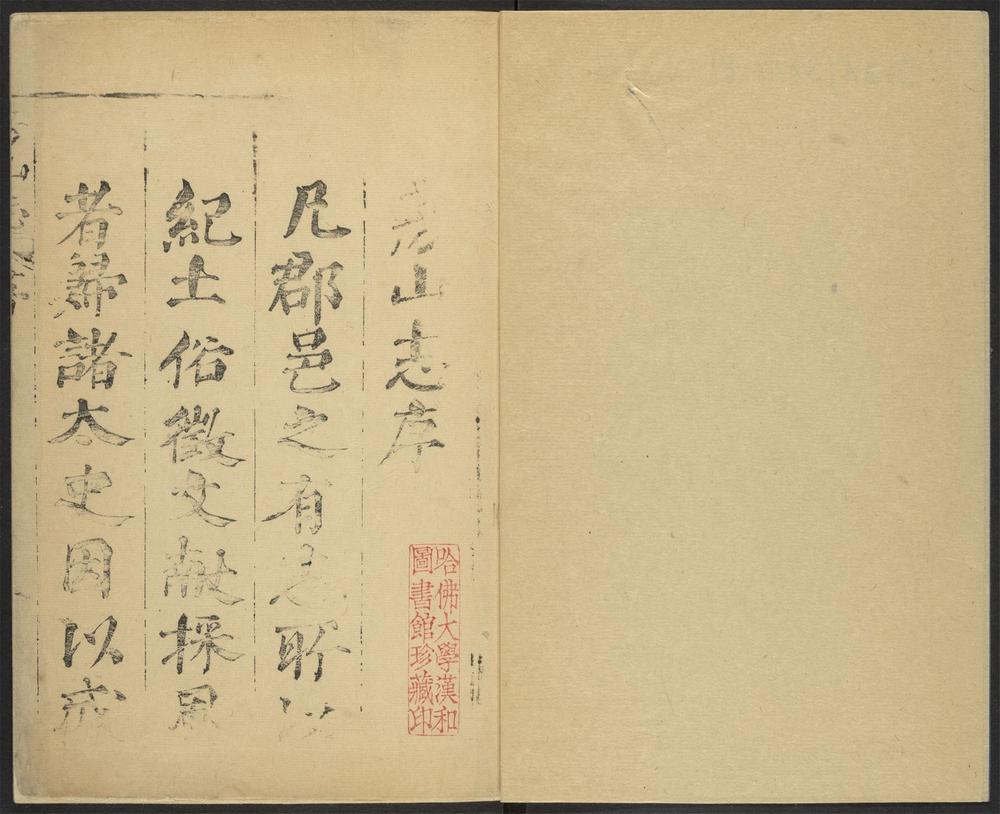 山志序
凡郡邑之有志所以
紀土俗徵文献採風
者歸諸太史因以
哈佛大學漢和
圖書館珍藏印